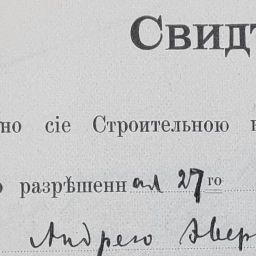 Свидт
но сіе Строительною к
о разрѣшенн ал 27го
Андрею Звер